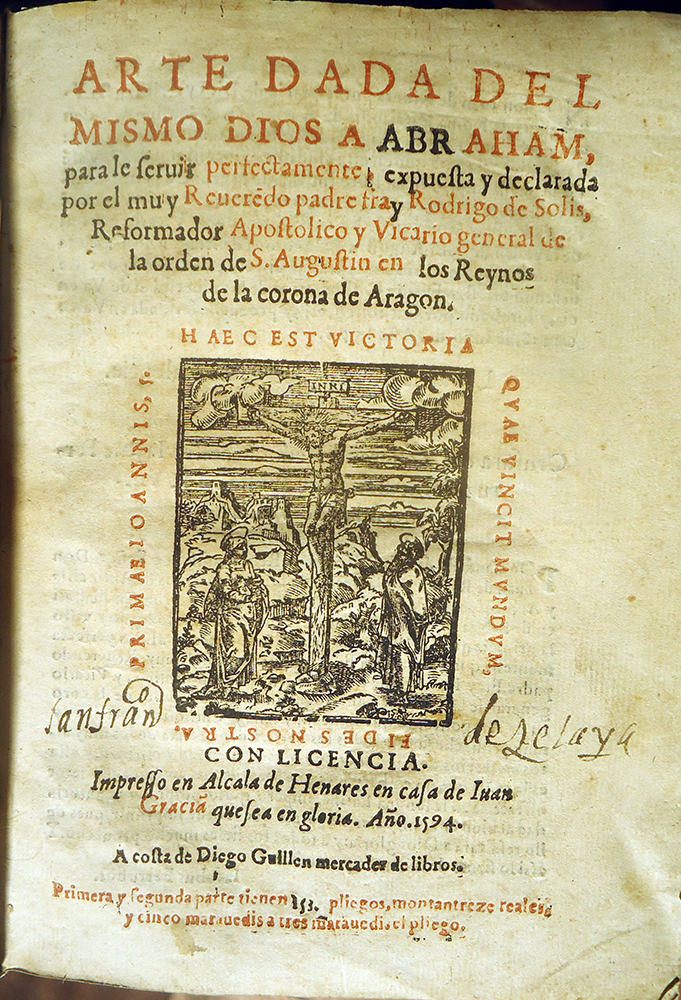 ARTE DADA DEL
MISMO DIOS A ABRAHAM,
para le seruir perfectamente, expuesta y declarada
por el muy Reuerẽdo padre fray Rodrigo de Solis,
Reformador Apostolico y Vicario general de
la orden de S. Augustin en los Reynos
de la corona de Aragon.
HAEC EST VICTORIA
QVAE VINCIT MVNDVM,
FIDES NOSTRA.
PRIMAE IOANNIS, 5.
INRI
san franco
de zelaya
CON LICENCIA.
Impresso en Alcala de Henares en casa de Iuan
Gracia quesea en gloria. Año. 1594.
A costa de Diego Guillen mercader de libros.
Primera y segunda parte tienen 153. pliegos, montantreze reales,
y cinco marauedis a tres marauedis el pliego.